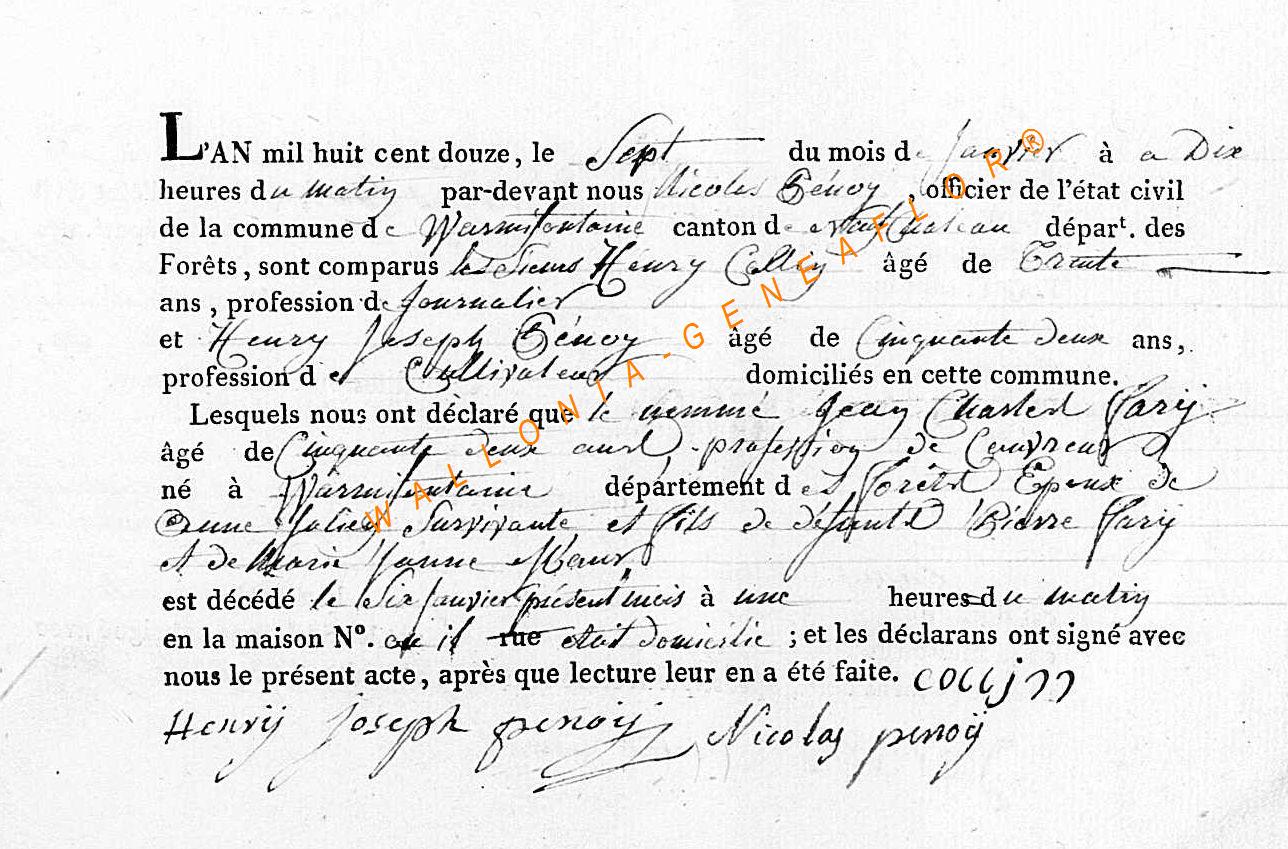 L'AN mil huit cent douze, le Sept du mois de Janvier à a Dix
heures du matin par-devant nous Nicolas Pénoy, officier de l'état civil
de la commune de Warmifontaine canton de neufchateau départ. des
Forêts, sont comparus les Sieurs Henry Collin âgé de Trente
ans, profession de Journalier
et Henry Joseph Pénoy âgé de Cinquante deux ans,
profession de Cultivateur domiciliés en cette commune.
Lesquels nous ont déclaré que le nommé Jean Charles
âgé de Cinquante deux ans profession de Couvreur
né à Warmifontaine département des forêts Epoux de
Anne Survivante et fils de défunts Pierre
et de Marie Janne
est décédé le Six Janvier présent mois à une heures du matin
en la maison N°. ou il rue etait domicilie ; et les déclarans ont signé avec
nous le présent acte, après que lecture leur en a été faite. colljnn
Henrij Joseph penoij Nicolas penoij
WALLONIA-GENEAFLOR®